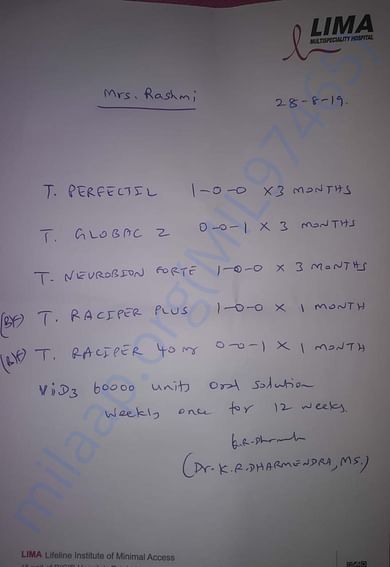 LIMA
MULTISPECIALITY HOSPITAL
Mrs. Rashmi
28-8-19.
T. PERFECTIL 1-0-0 x 3 MONTHS
T. GLOBAC Z 0-0-1 x 3 MONTHS
T. NEUROBION FORTE 1-0-0 x 3 MONTHS
(B/F) T. RACIPER PLUS 1-0-0 x 1 MONTH
(B/F) T. RACIPER 40 mg 0-0-1 x 1 MONTH
ViD3 60000 units oral solution
weekly once for 12 weeks.
(Dr. K.R. DHARMENDRA, MS.)
milaap.org(MIL97465)
LIMA Lifeline Institute of Minimal Access